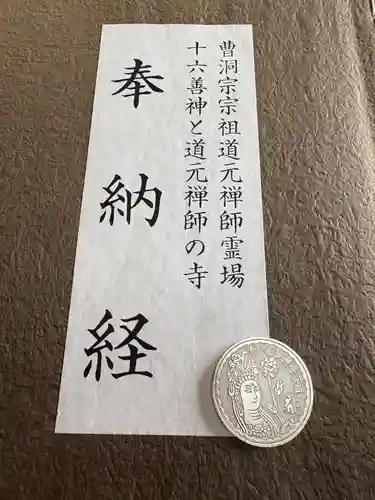 曹洞宗宗祖道元禅師霊場
十六善神と道元禅師の寺
奉納経